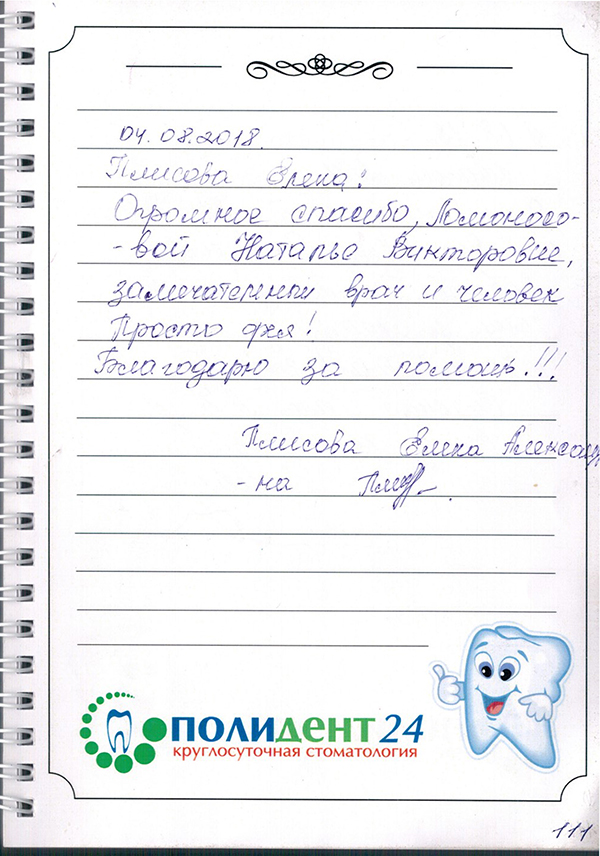 04.08.2018.
Плисова Елена:
Огромное спасибо, Ломоносо-
-вой Наталье Викторовне,
замечательный врач и человек
Просто фея!
Благодарю за помощь!!!
Плисова Елена Александ
-на
ПОЛИДЕНТ 24
круглосуточная стоматология
111